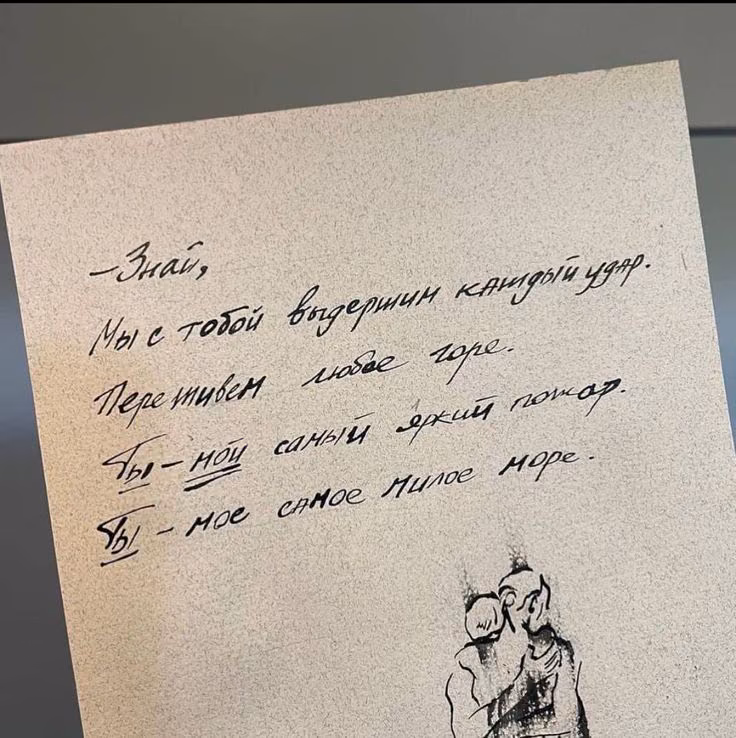 -Знай,
Мы с тобой выдержим каждый удар.
Переживем любое горе.
Ты - мой самый яркий пожар.
Ты - мое самое милое море.